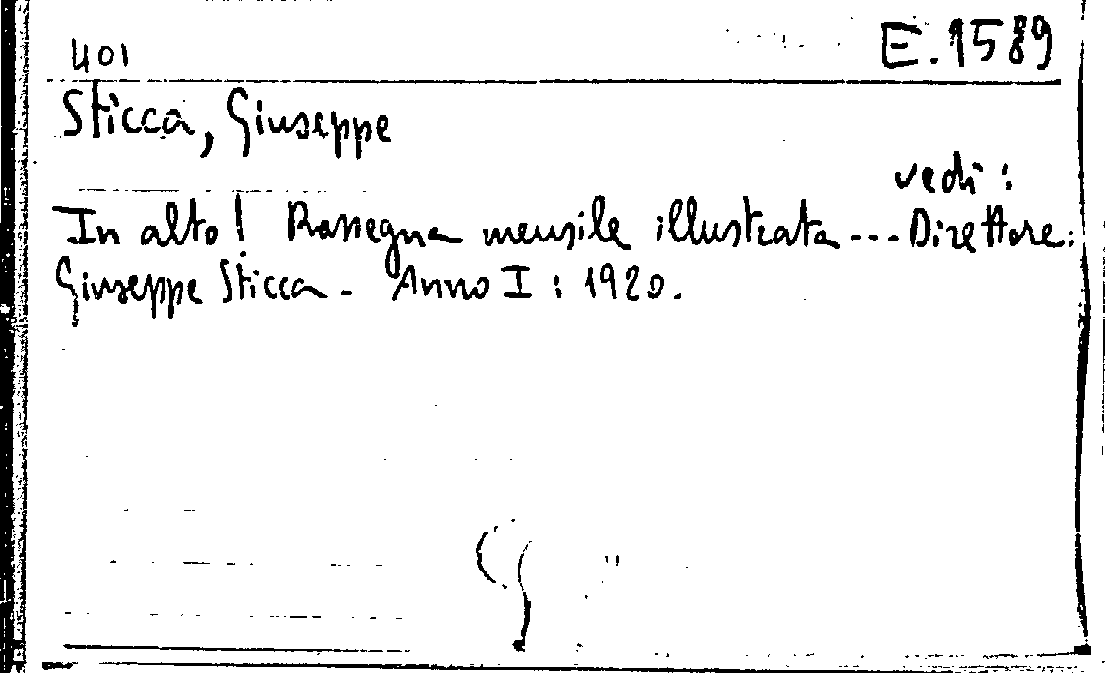 401
E.1589
Sticca, Giuseppe
vedi:
In alto! Rassegna mensile illustrata --- Direttore:
Giuseppe Sticca - Anno I: 1920.